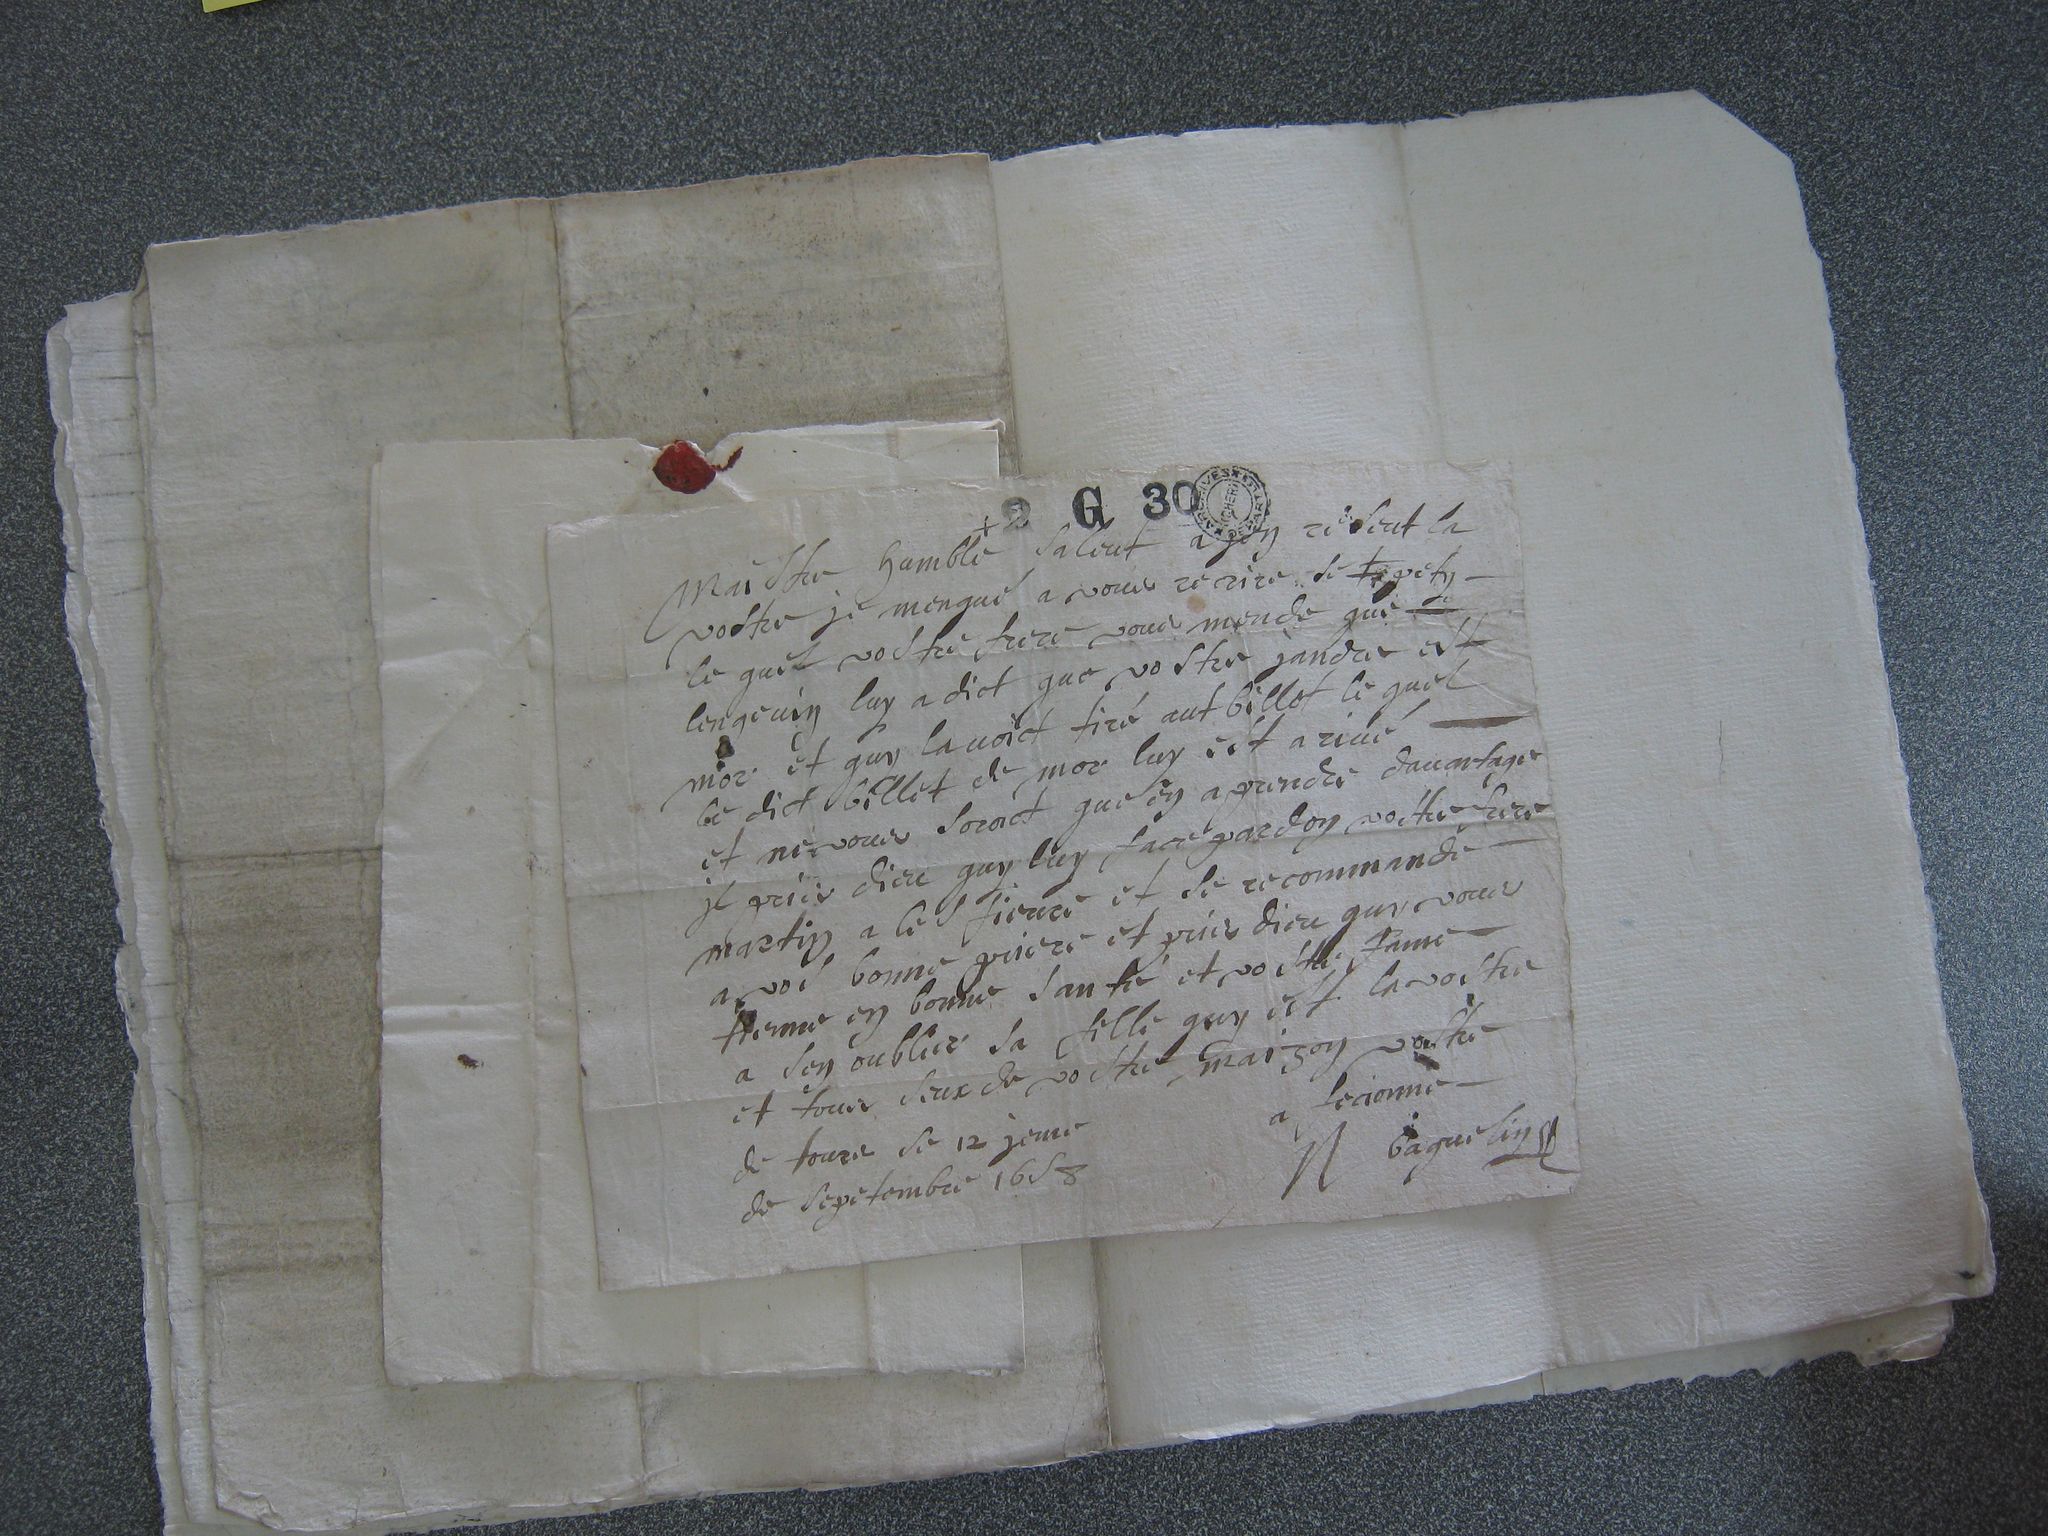 2 G 30
ARCHIVES
Maistre humble saleut ayen reseut la
vostre je mengué a vous rerire se pety
le quel vostre frere vous mende que
lengevin luy a dict que vostre jandre est
mor et quy lavoict tiré aut billet le quel
le dict billet de mor luy est arivé
et ne vous soroict que en aprendre davantage
je prie dieu quy luy face pardon vostre frere
martin a les fievre et se recommande
a vos bonne priere et prie dieu quy vous
tienne en bonne santé et vostre fame
a sen oublier sa fille quy est la vostre
et tous seux de vostre maizon vostre
a fecionné
de tours se 12 jeme
de sepetembre 1658
N baguelin